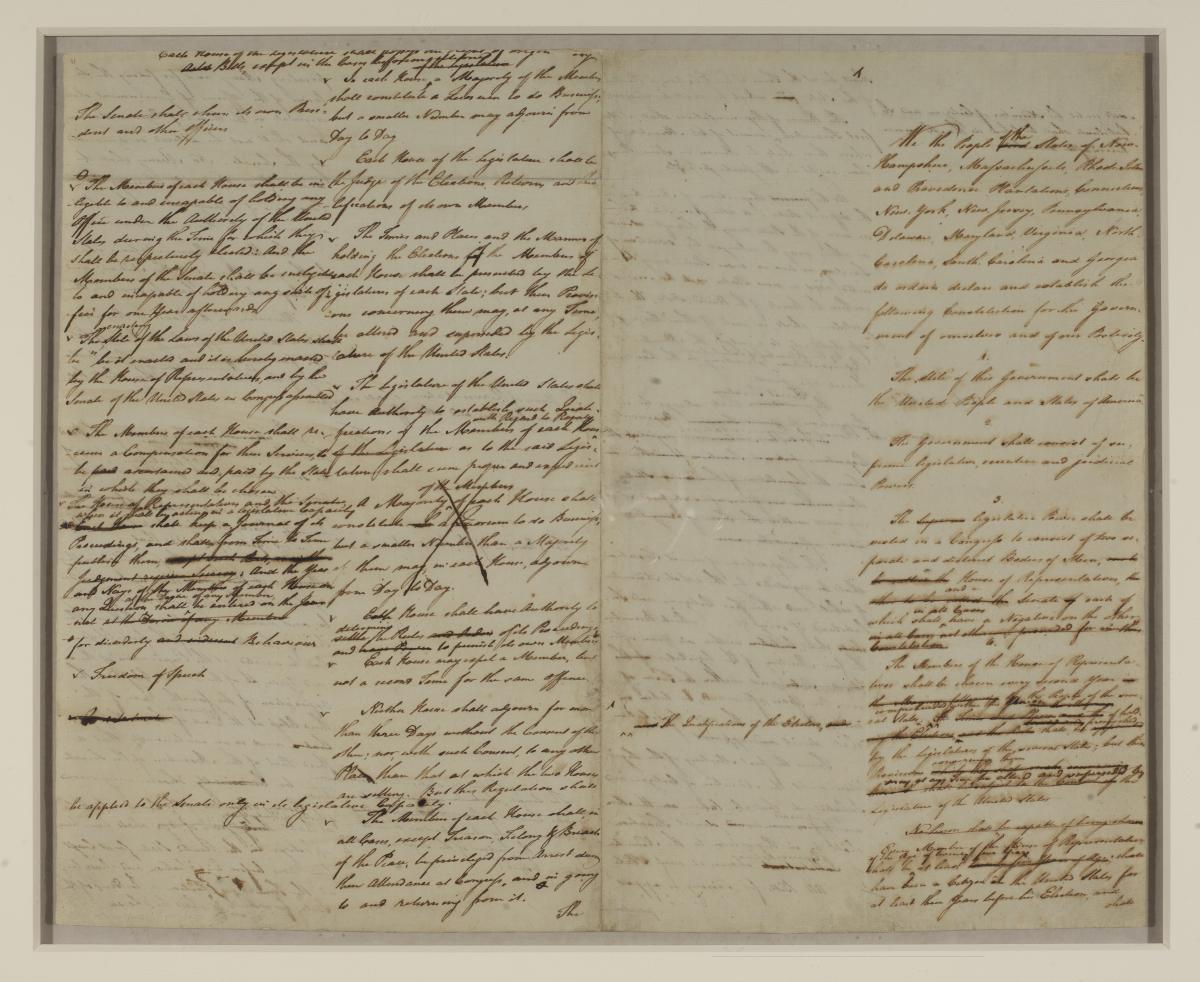 Each House of the Legislature shall possess the right of origin
Bills, except in the Cases
In each House a Majority of the Members
shall constitute a Quorum to do Business;
but a smaller Number may adjourn from
Day to Day
The Senate shall chuse its own Presi-
dent and other Officers
Each House of the Legislature shall be
the Judge of the Elections, Returns and
lifications of its own Members,
The Members of each House shall be ine
ligible to and incapable of holding any
Office under the Authority of the United
States during the Time for which they
shall be respectively elected: And the
Members of the Senate shall be ineligible
to and incapable of holding any such Of
fice for one Year afterwards
The Times and Places and the Manner of
holding the Elections of the Members of
each House shall be prescribed by the Le
gislature of each State; but their Provisi
ons concerning them may, at any Time
be altered and superseded by the Legis-
lature of the United States
enacting
The Stile of the Laws of the United States shall
be "be it enacted and it is hereby enacted
by the House of Representatives, and by the
Senate of the United States in Congress assembled
The Legislature of the United States shall
have Authority to establish such Quali-
with Regard to Property
fications of the Members of each House
of the Legislature as to the said Legis-
lature shall seem proper and expedient
The Members of each House shall re-
ceive a Compensation for their Services, to
be paid ascertained and paid by the State
in which they shall be chosen
of the Members
A Majority of each House shall
constitute a Quorum to do Business,
but a smaller Number than a Majority
of them may, in each House, adjourn
from Day to Day.
The House of Representatives and the Senate
when it shall be acting in a legislative Capacity
shall keep a Journal of its
Proceedings, and shall from Time to Time
publish them
And the Yeas
and Nays of the Members of each House on
any Question shall be entered on the Jour
nal at the Desire of any Member
Each House shall have Authority to
determine
settle the Rules of its Proceedings
and to punish its own Members
for disorderly and indecent Behaviour
Each House may expel a Member, but
not a second Time for the same Offence
Freedom of Speech
Neither House shall adjourn for more
than three Days without the Consent of the
other; nor, with such Consent, to any other
Place than that at which the two Houses
are sitting. But this Regulation shall
be applied to the Senate only in its legislative Capacity.
The Members of each House shall, in
all Cases, except Treason, Felony & Breach
of the Peace, be priviledged from Arrest during
their Attendance at Congress, and in going
to and returning from it.
The
The Qualifications of the Electors,
We the People of the States of New-
Hampshire, Massachusetts, Rhode Island
and Providence Plantations, Connecticut,
New York, New Jersey, Pennsylvania,
Delaware, Maryland, Virginia, North-
Carolina, South Carolina and Georgia
do ordain declare and establish the
following Constitution for the Govern-
ment of ourselves and of our Posterity.
1.
The Stile of this Government shall be
the "United People and States of America
2.
The Government shall consist of su-
preme legislative, executive and judicial
Powers
3.
The Supreme legislative Power shall be
vested in a Congress to consist of two se-
parate and distinct Bodies of Men,
House of Representatives,
and
the Senate each of
in all Cases
which shall have a Negative on the other
in all Cases not otherwise provided for in this
Constitution
4.
The Members of the House of Representa-
tives shall be chosen every second Year
by the People of the seve-
ral States
by the Legislatures of the several States; but their
Provisions concerning them
may at any Time be altered and superseded by
the
Legislature of the United States
No Person shall be capable of being chosen
Every Member of the House of Representatives
shall be of the Age of twenty five Years
shall
have been a Citizen in the United States for
at least three Years before his Election, and
shall